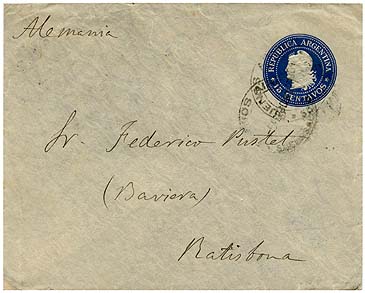 Alemania
REPUBLICA ARGENTINA
15 CENTAVOS
BUENOS
Sr. Federico Pustet
(Baviera)
Ratisbona